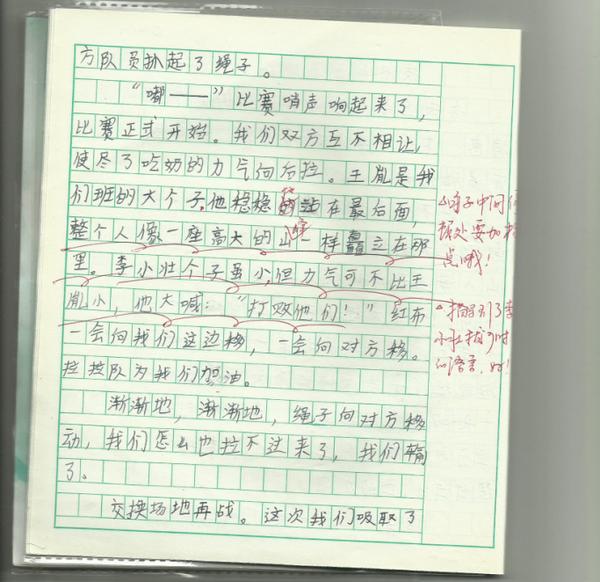 方队员抓起了绳子。
“嘟——”比赛哨声响起来了,
比赛正式开始。我们双方互不相让,
使尽了吃奶的力气向后拉。王胤是我
们班的大个子,他稳稳的站在最后面,
整个人像一座高大的山一样矗立在那
里。李小壮个子虽小,但力气可不比王
胤小,他大喊:“打败他们!”红布
一会向我们这边移,一会向对方移。
拉拉队为我们加油。
渐渐地,渐渐地,绳子向对方移
动,我们怎么也拉不过来了,我们输
了。
交换场地再战。这次我们吸取了
句子中间
据处要加
点哦!
描写了李
小壮拔河时
的语言,好!